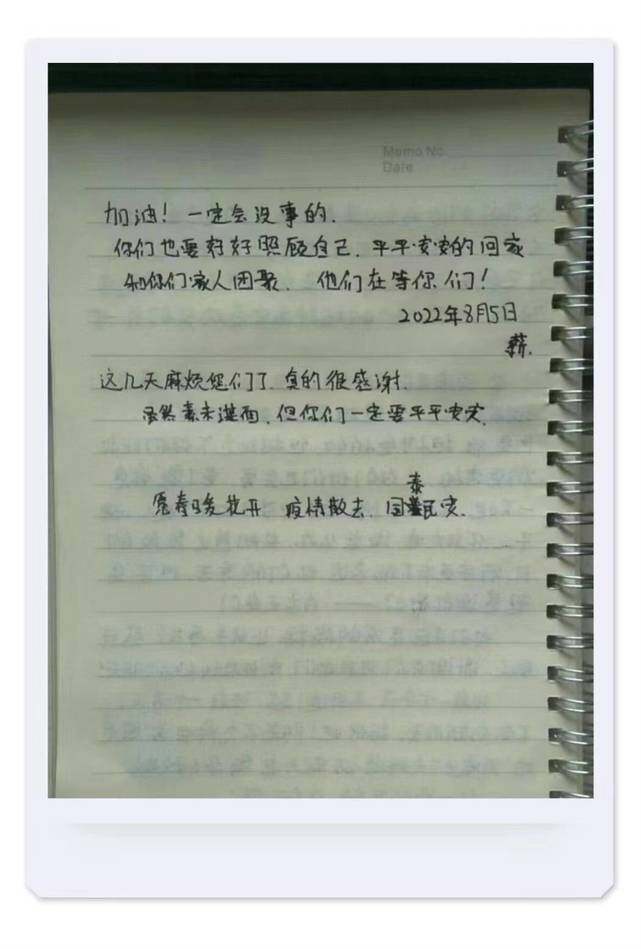 Memo No.
Date
加油！一定会没事的.
你们也要好好照顾自己.平平安安的回家
和你们家人团聚.他们在等你们！
2022年8月5日
这几天麻烦您们了.真的很感谢.
虽然素未谋面.但你们一定要平平安安.
泰
愿春暖花开 疫情散去.国民安.